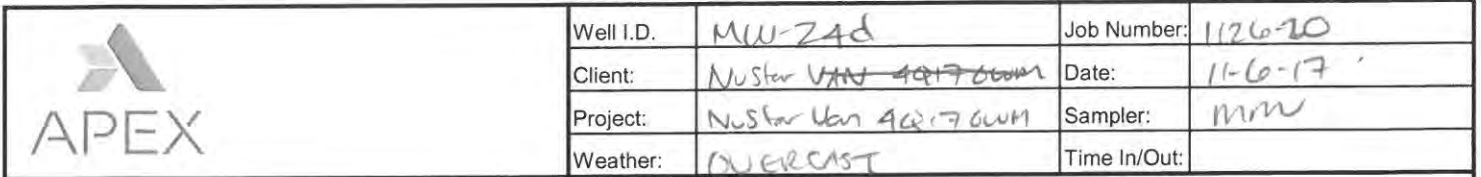 APEX
Well I.D. MW-24d Job Number: 1126-20
Client: NuStar VAN 4Q17 GWM Date: 11-6-17
Project: NuStar Van 4Q17 GWM Sampler: MMW
Weather: OVERCAST Time In/Out: